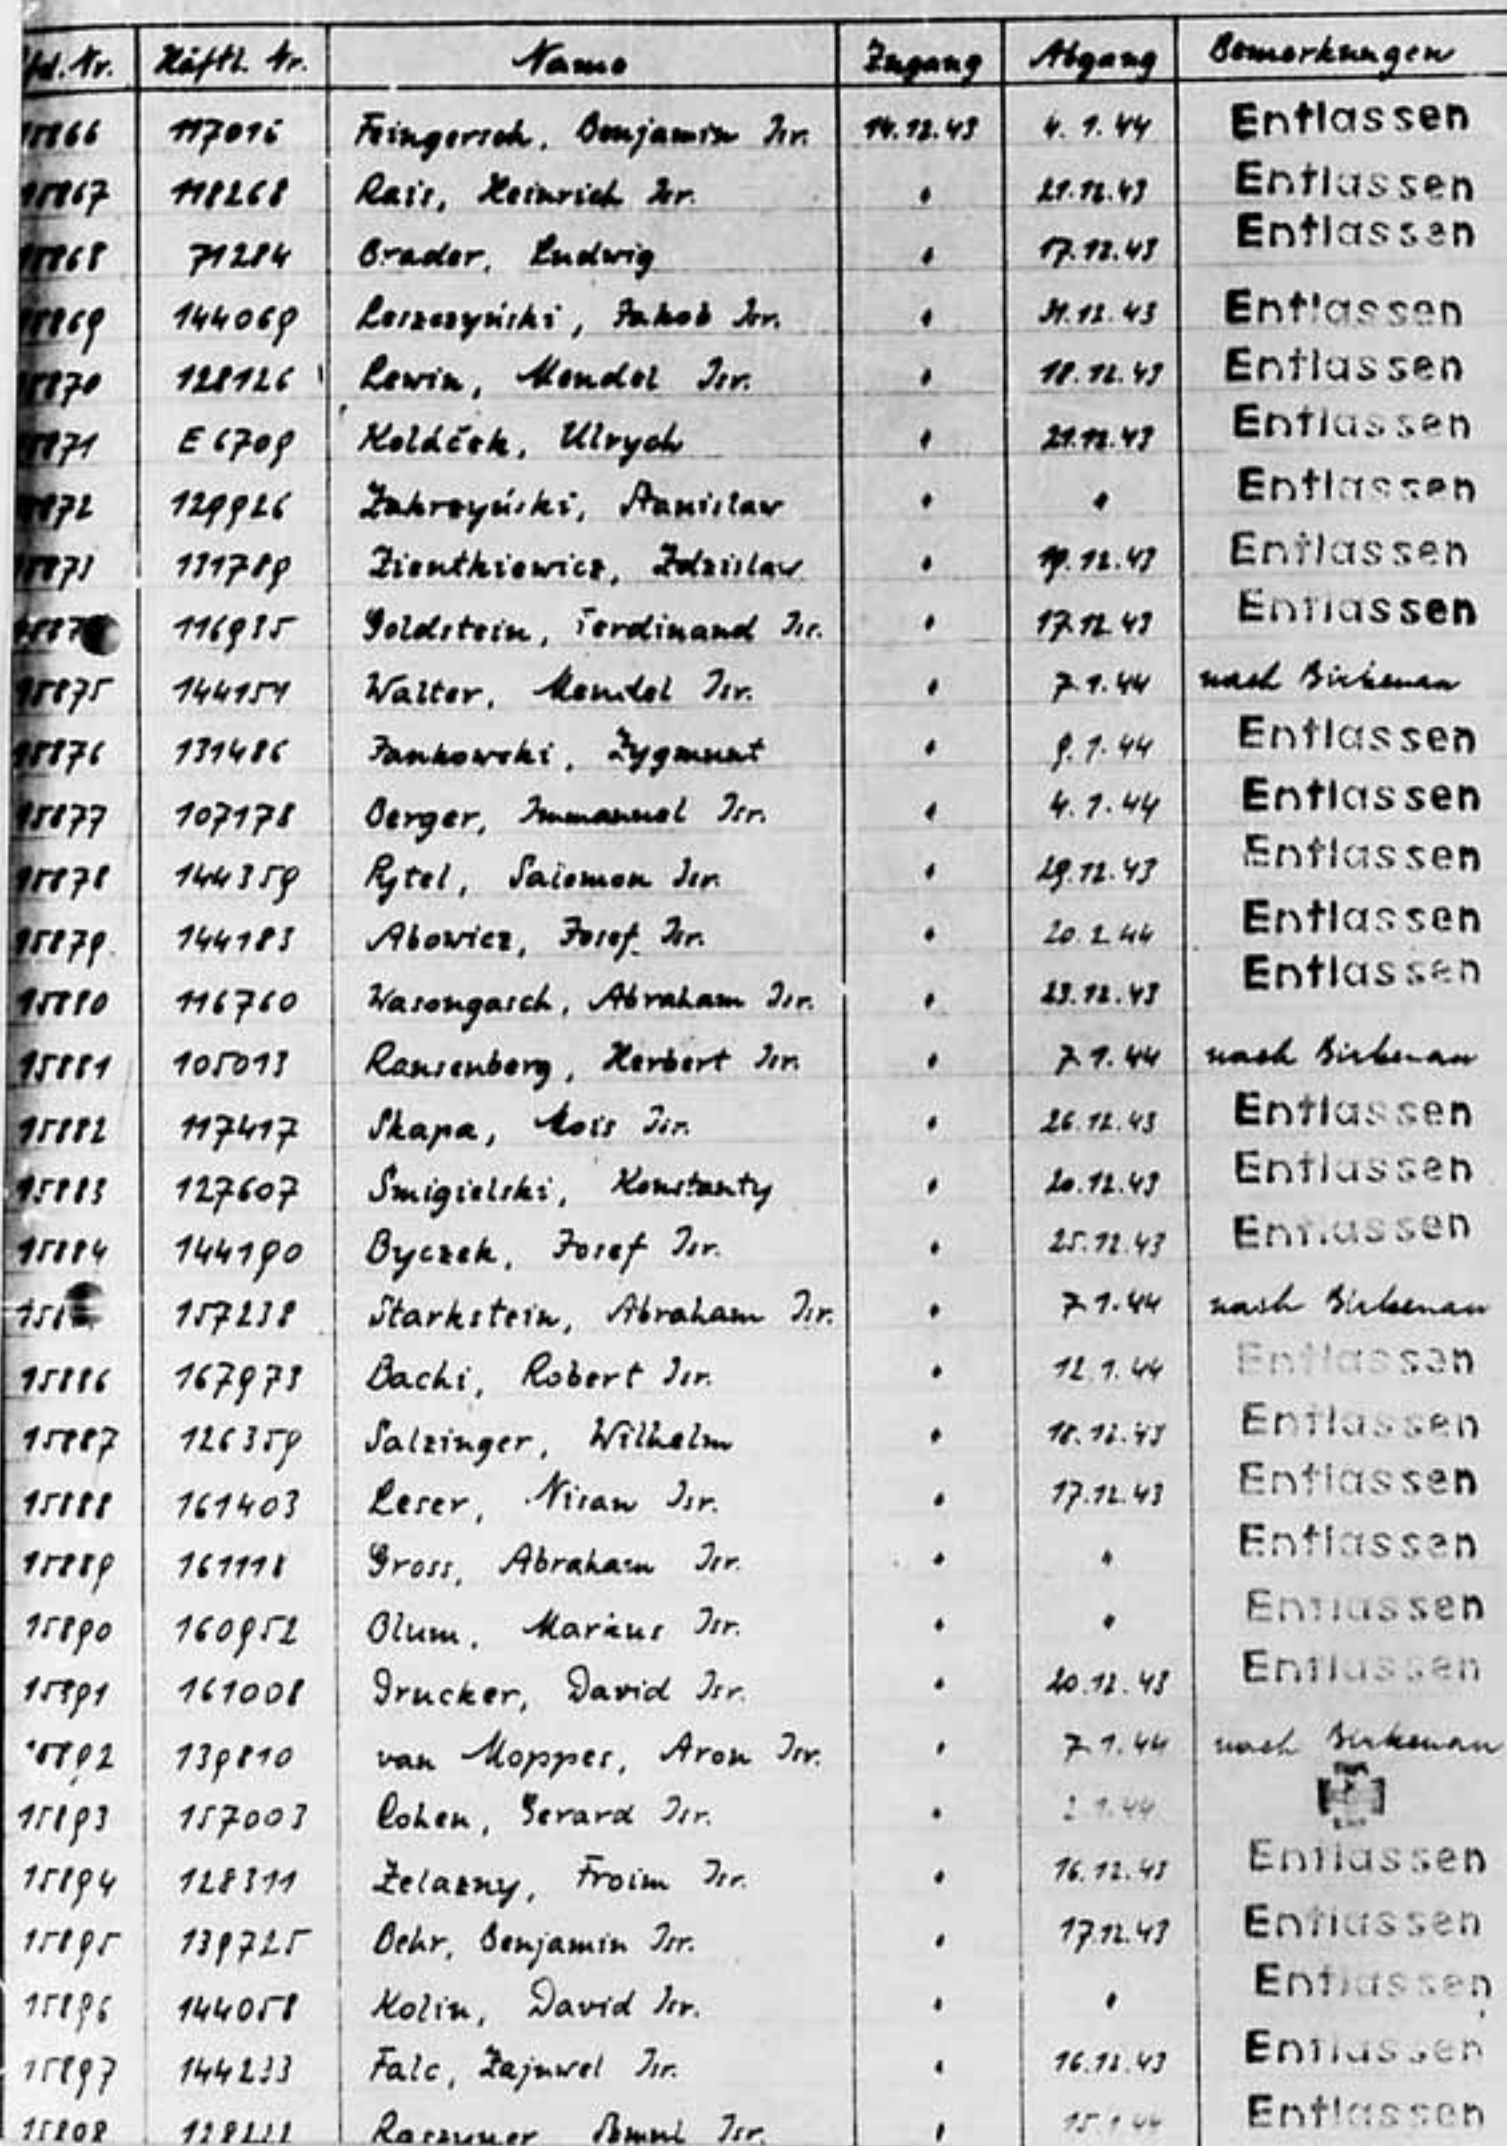 lfd. Nr. Häftl. Nr. Name Zugang Abgang Bemerkungen
15866 117015 Feingersch, Benjamin Isr. 14.12.43 4.1.44 Entlassen
15867 118268 Rais, Heinrich Isr. " 21.12.43 Entlassen
15868 71284 Brader, Ludwig " 17.12.43 Entlassen
15869 144069 Leszczyński, Jakob Isr. " 31.12.43 Entlassen
15870 128126 Lewin, Mendel Isr. " 18.12.43 Entlassen
15871 E 6709 Koláček, Ulrych " 21.12.43 Entlassen
15872 129926 Zakrzyński, Stanislaw " " Entlassen
15873 131789 Zientkiewicz, Zdzislaw " 19.12.43 Entlassen
1587 116985 Goldstein, Ferdinand Isr. " 17.12.43 Entlassen
15875 144151 Walter, Mendel Isr. " 7.1.44 nach Birkenau
15876 131486 Jankowski, Zygmunt " 9.1.44 Entlassen
15877 107178 Berger, Immanuel Isr. " 4.1.44 Entlassen
15878 144359 Rytel, Salomon Isr. " 29.12.43 Entlassen
15879 144183 Abowicz, Josef Isr. " 20.2.44 Entlassen
15880 116760 Wasongasch, Abraham Isr. " 23.12.43 Entlassen
15881 105013 Ransenberg, Herbert Isr. " 7.1.44 nach Birkenau
15882 117417 Skapa, Mois Isr. " 26.12.43 Entlassen
15883 127607 Smigielski, Konstanty " 20.12.43 Entlassen
15884 144190 Byczek, Josef Isr. " 25.12.43 Entlassen
158 157238 Starkstein, Abraham Isr. " 7.1.44 nach Birkenau
15886 167973 Bachi, Robert Isr. " 12.1.44 Entlassen
15887 126359 Salzinger, Wilhelm " 18.12.43 Entlassen
15888 161403 Leser, Nisan Isr. " 17.12.43 Entlassen
15889 161118 Gross, Abraham Isr. " " Entlassen
15890 160952 Blum, Markus Isr. " " Entlassen
15891 161008 Drucker, David Isr. " 20.12.43 Entlassen
15892 139810 van Moppes, Aron Isr. " 7.1.44 nach Birkenau
15893 157003 Cohen, Gerard Isr. " 2.1.44
15894 128311 Zelazny, Froim Isr. " 16.12.43 Entlassen
15895 139725 Behr, Benjamin Isr. " 17.12.43 Entlassen
15896 144058 Kolin, David Isr. " " Entlassen
15897 144233 Falc, Zajnwel Isr. " 16.12.43 Entlassen
15898 Isr. " 15.1.44 Entlassen